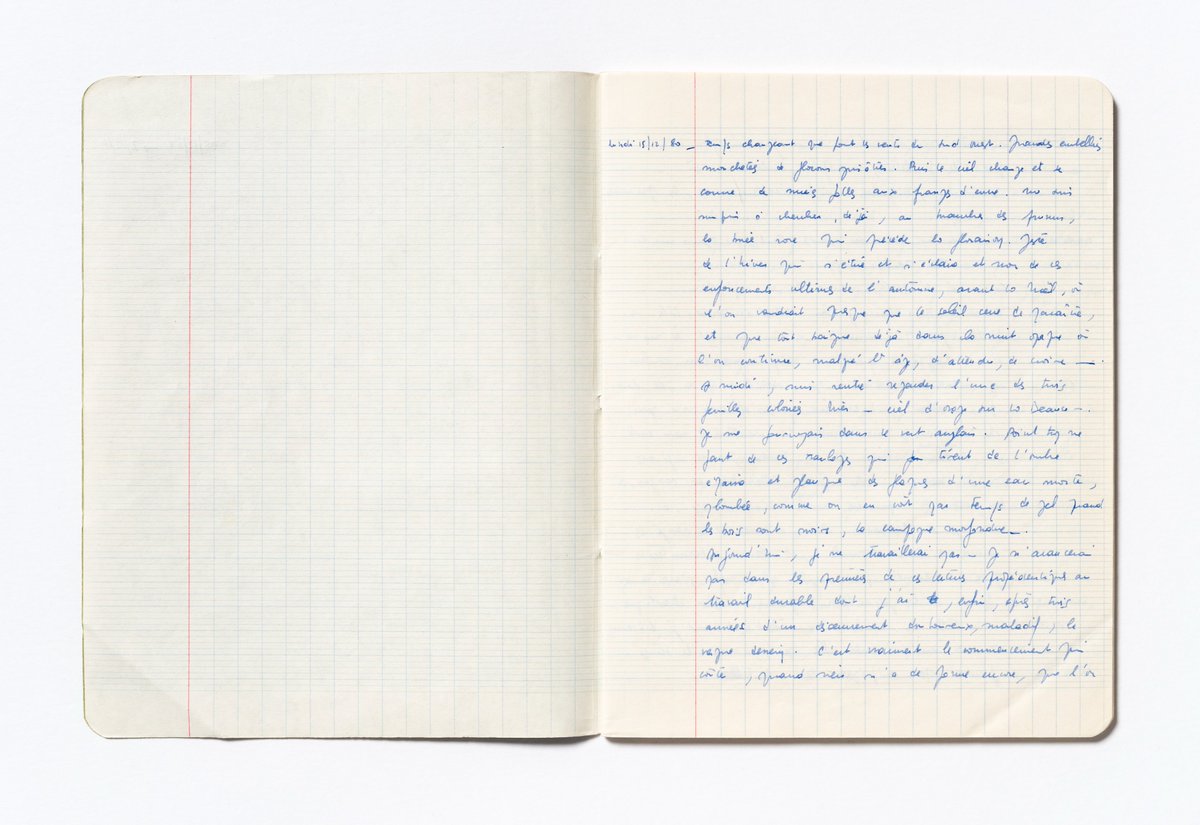 Lundi 15/12/80 _ Temps changeant que font les vents du sud ouest. Grandes embellies
mouchetées de flocons grisâtres. Puis le ciel change et se
couvre de nuées aux franges d'encre. me suis
surpris à chercher, déjà, au branches des prunus,
la buée rose qui précède la floraison. Juste
de l'hiver qui s'étire et s'éclaire et non de ces
enfoncements ultimes de l'automne, avant la Noël, où
l'on voudrait presque que le soleil cesse de paraître,
et que tout baigne déjà dans la nuit opaque où
l'on continue, malgré l'âge, d'attendre, de croire —.
A midi, suis rentré regarder l'une des trois
feuilles coloriées hier — ciel d'orage sur la Beauce —.
Je me fourvoyais dans le vert anglais. Point trop ne
faut de ces qui tirent de l'ombre
épaisse et presque des flaques d'une eau morte,
plombée, comme on en voit par temps de gel quand
les bois sont noirs, la campagne morfondue —.
Aujourd'hui, je ne travaillerai pas — Je n'avancerai
pas dans les premières de ces lectures propédeutiques au
travail durable dont j'ai, enfin, après trois
années d'un désœuvrement douloureux, maladif, le
vague dessein. C'est vraiment le commencement qui
coûte, quand rien n'a de forme encore, que l'on